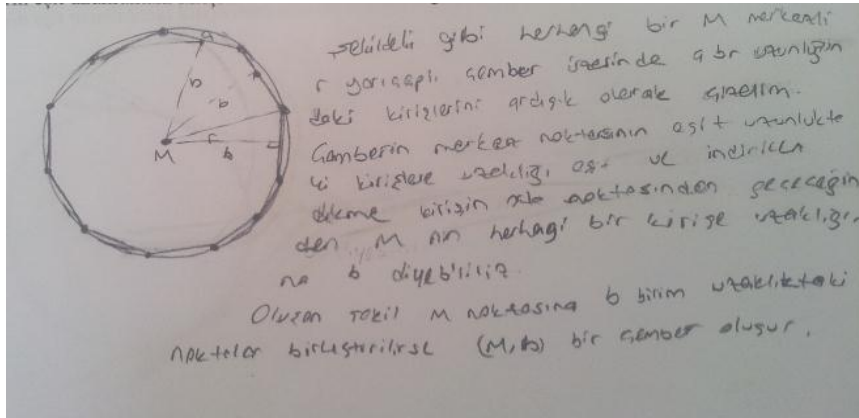 şekildeki gibi herhangi bir M merkezli
r yarıçaplı çember üzerinde a br uzunluğun
daki kirişlerini ardışık olarak çizelim.
Çemberin merkez noktasının eşit uzunlukta
ki kirişlere uzaklığı eşit ve indirilen
dikme kirişin orta noktasından geçeceğin
den M nin herhagi bir kirişe uzaklığı
na b diyebiliriz.
Oluşan şekil M noktasına b birim uzaklıktaki
noktalar birleştirilirse (M, b) bir çember oluşur.
a
b
b
r
M
b